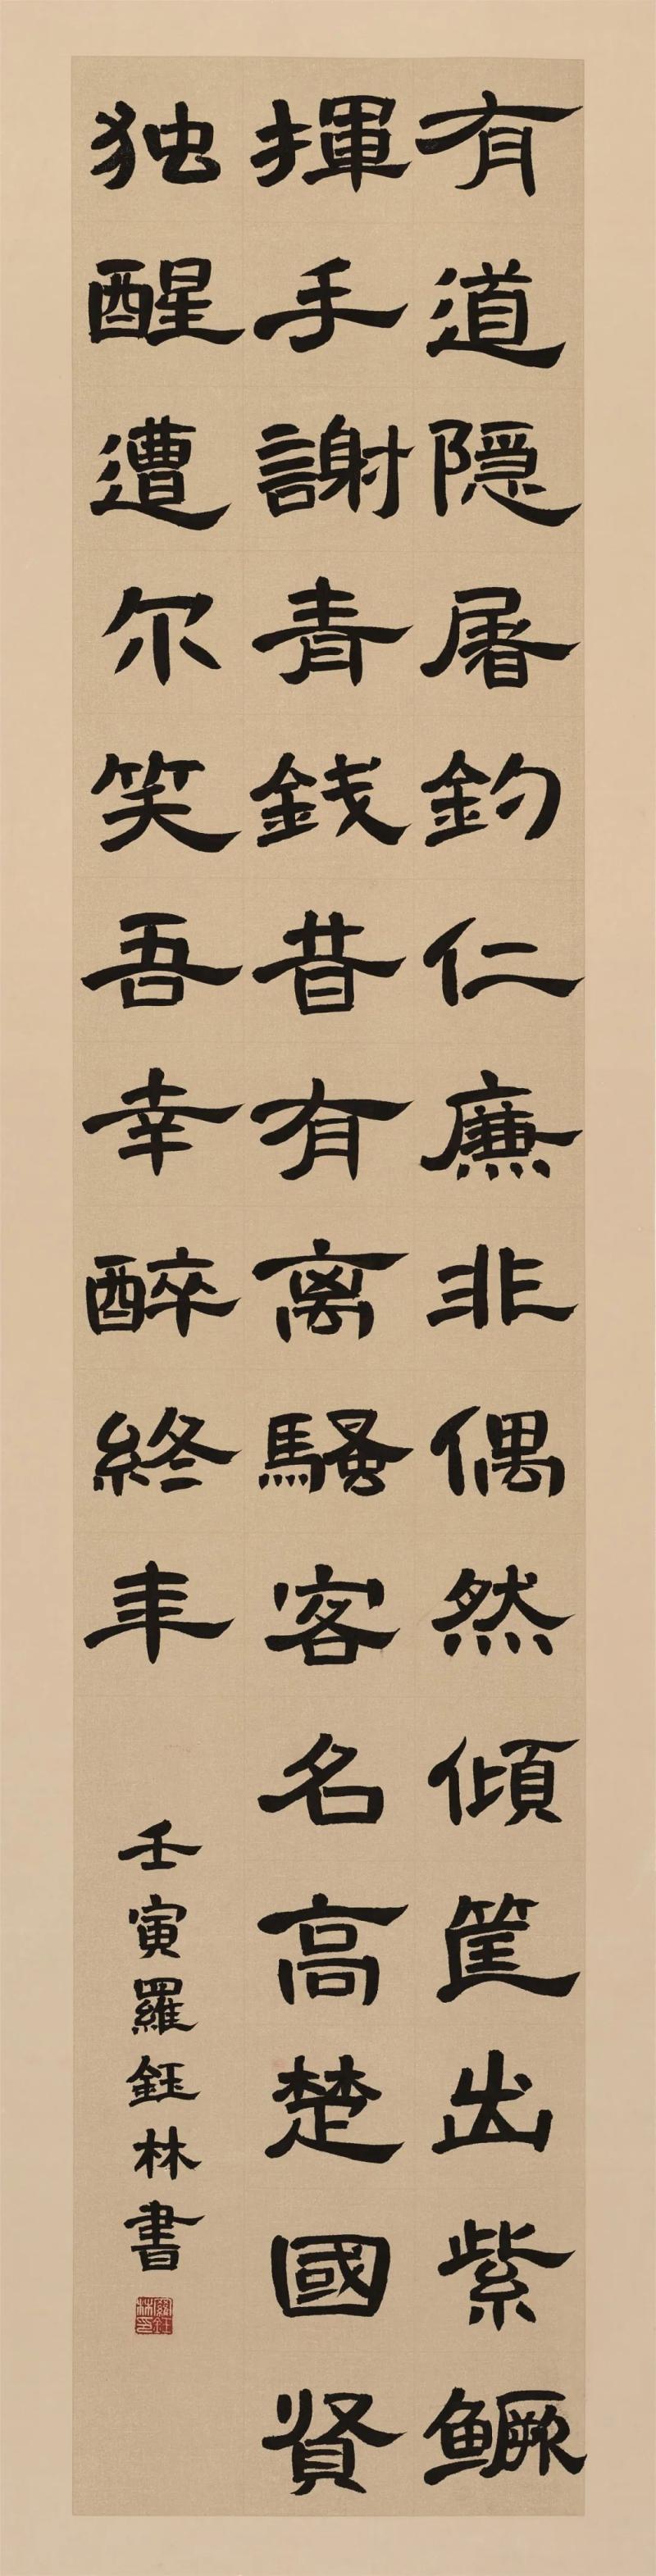 有道隐屠釣仁廉非偶然傾筐出紫鱖
揮手謝青錢昔有离騷客名高楚國贤
独醒遭尔笑吾幸醉終年
壬寅羅鈺林書
羅鈺林印